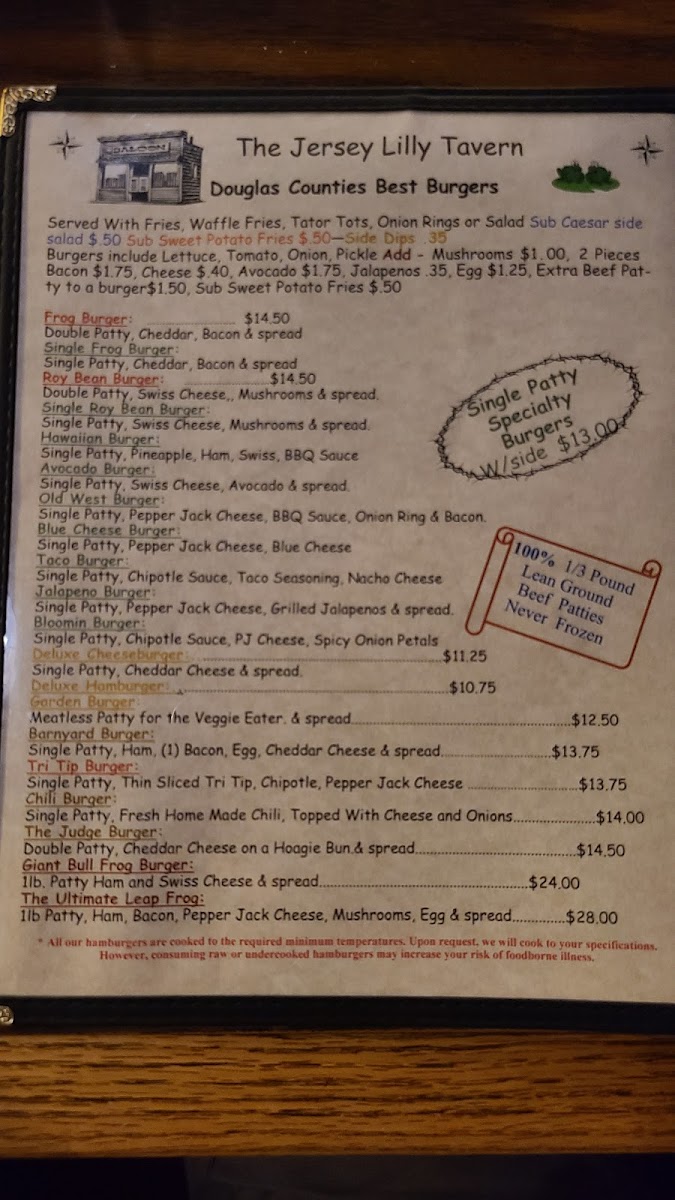 SALOON
The Jersey Lilly Tavern
Douglas Counties Best Burgers
Served With Fries, Waffle Fries, Tator Tots, Onion Rings or Salad Sub Caesar side
salad $.50 Sub Sweet Potato Fries $.50—Side Dips .35
Burgers include Lettuce, Tomato, Onion, Pickle Add - Mushrooms $1.00, 2 Pieces
Bacon $1.75, Cheese $.40, Avocado $1.75, Jalapenos .35, Egg $1.25, Extra Beef Pat-
ty to a burger$1.50, Sub Sweet Potato Fries $.50
Frog Burger: ........................ $14.50
Double Patty, Cheddar, Bacon & spread
Single Frog Burger:
Single Patty, Cheddar, Bacon & spread
Roy Bean Burger: ........................$14.50
Double Patty, Swiss Cheese,, Mushrooms & spread.
Single Roy Bean Burger:
Single Patty, Swiss Cheese, Mushrooms & spread.
Hawaiian Burger:
Single Patty, Pineapple, Ham, Swiss, BBQ Sauce
Avocado Burger:
Single Patty, Swiss Cheese, Avocado & spread.
Old West Burger:
Single Patty, Pepper Jack Cheese, BBQ Sauce, Onion Ring & Bacon.
Blue Cheese Burger:
Single Patty, Pepper Jack Cheese, Blue Cheese
Taco Burger:
Single Patty, Chipotle Sauce, Taco Seasoning, Nacho Cheese
Jalapeno Burger:
Single Patty, Pepper Jack Cheese, Grilled Jalapenos & spread.
Bloomin Burger:
Single Patty, Chipotle Sauce, PJ Cheese, Spicy Onion Petals
Deluxe Cheeseburger: ........................$11.25
Single Patty, Cheddar Cheese & spread.
Deluxe Hamburger: ........................$10.75
Garden Burger:
Meatless Patty for the Veggie Eater. & spread........................$12.50
Barnyard Burger:
Single Patty, Ham, (1) Bacon, Egg, Cheddar Cheese & spread........................$13.75
Tri Tip Burger:
Single Patty, Thin Sliced Tri Tip, Chipotle, Pepper Jack Cheese ........................$13.75
Chili Burger:
Single Patty, Fresh Home Made Chili, Topped With Cheese and Onions..................$14.00
The Judge Burger:
Double Patty, Cheddar Cheese on a Hoagie Bun.& spread........................$14.50
Giant Bull Frog Burger:
1lb. Patty Ham and Swiss Cheese & spread........................$24.00
The Ultimate Leap Frog:
1lb Patty, Ham, Bacon, Pepper Jack Cheese, Mushrooms, Egg & spread.............$28.00
* All our hamburgers are cooked to the required minimum temperatures. Upon request, we will cook to your specifications.
However, consuming raw or undercooked hamburgers may increase your risk of foodborne illness.
Single Patty
Specialty
Burgers
W/side $13.00
100% 1/3 Pound
Lean Ground
Beef Patties
Never Frozen